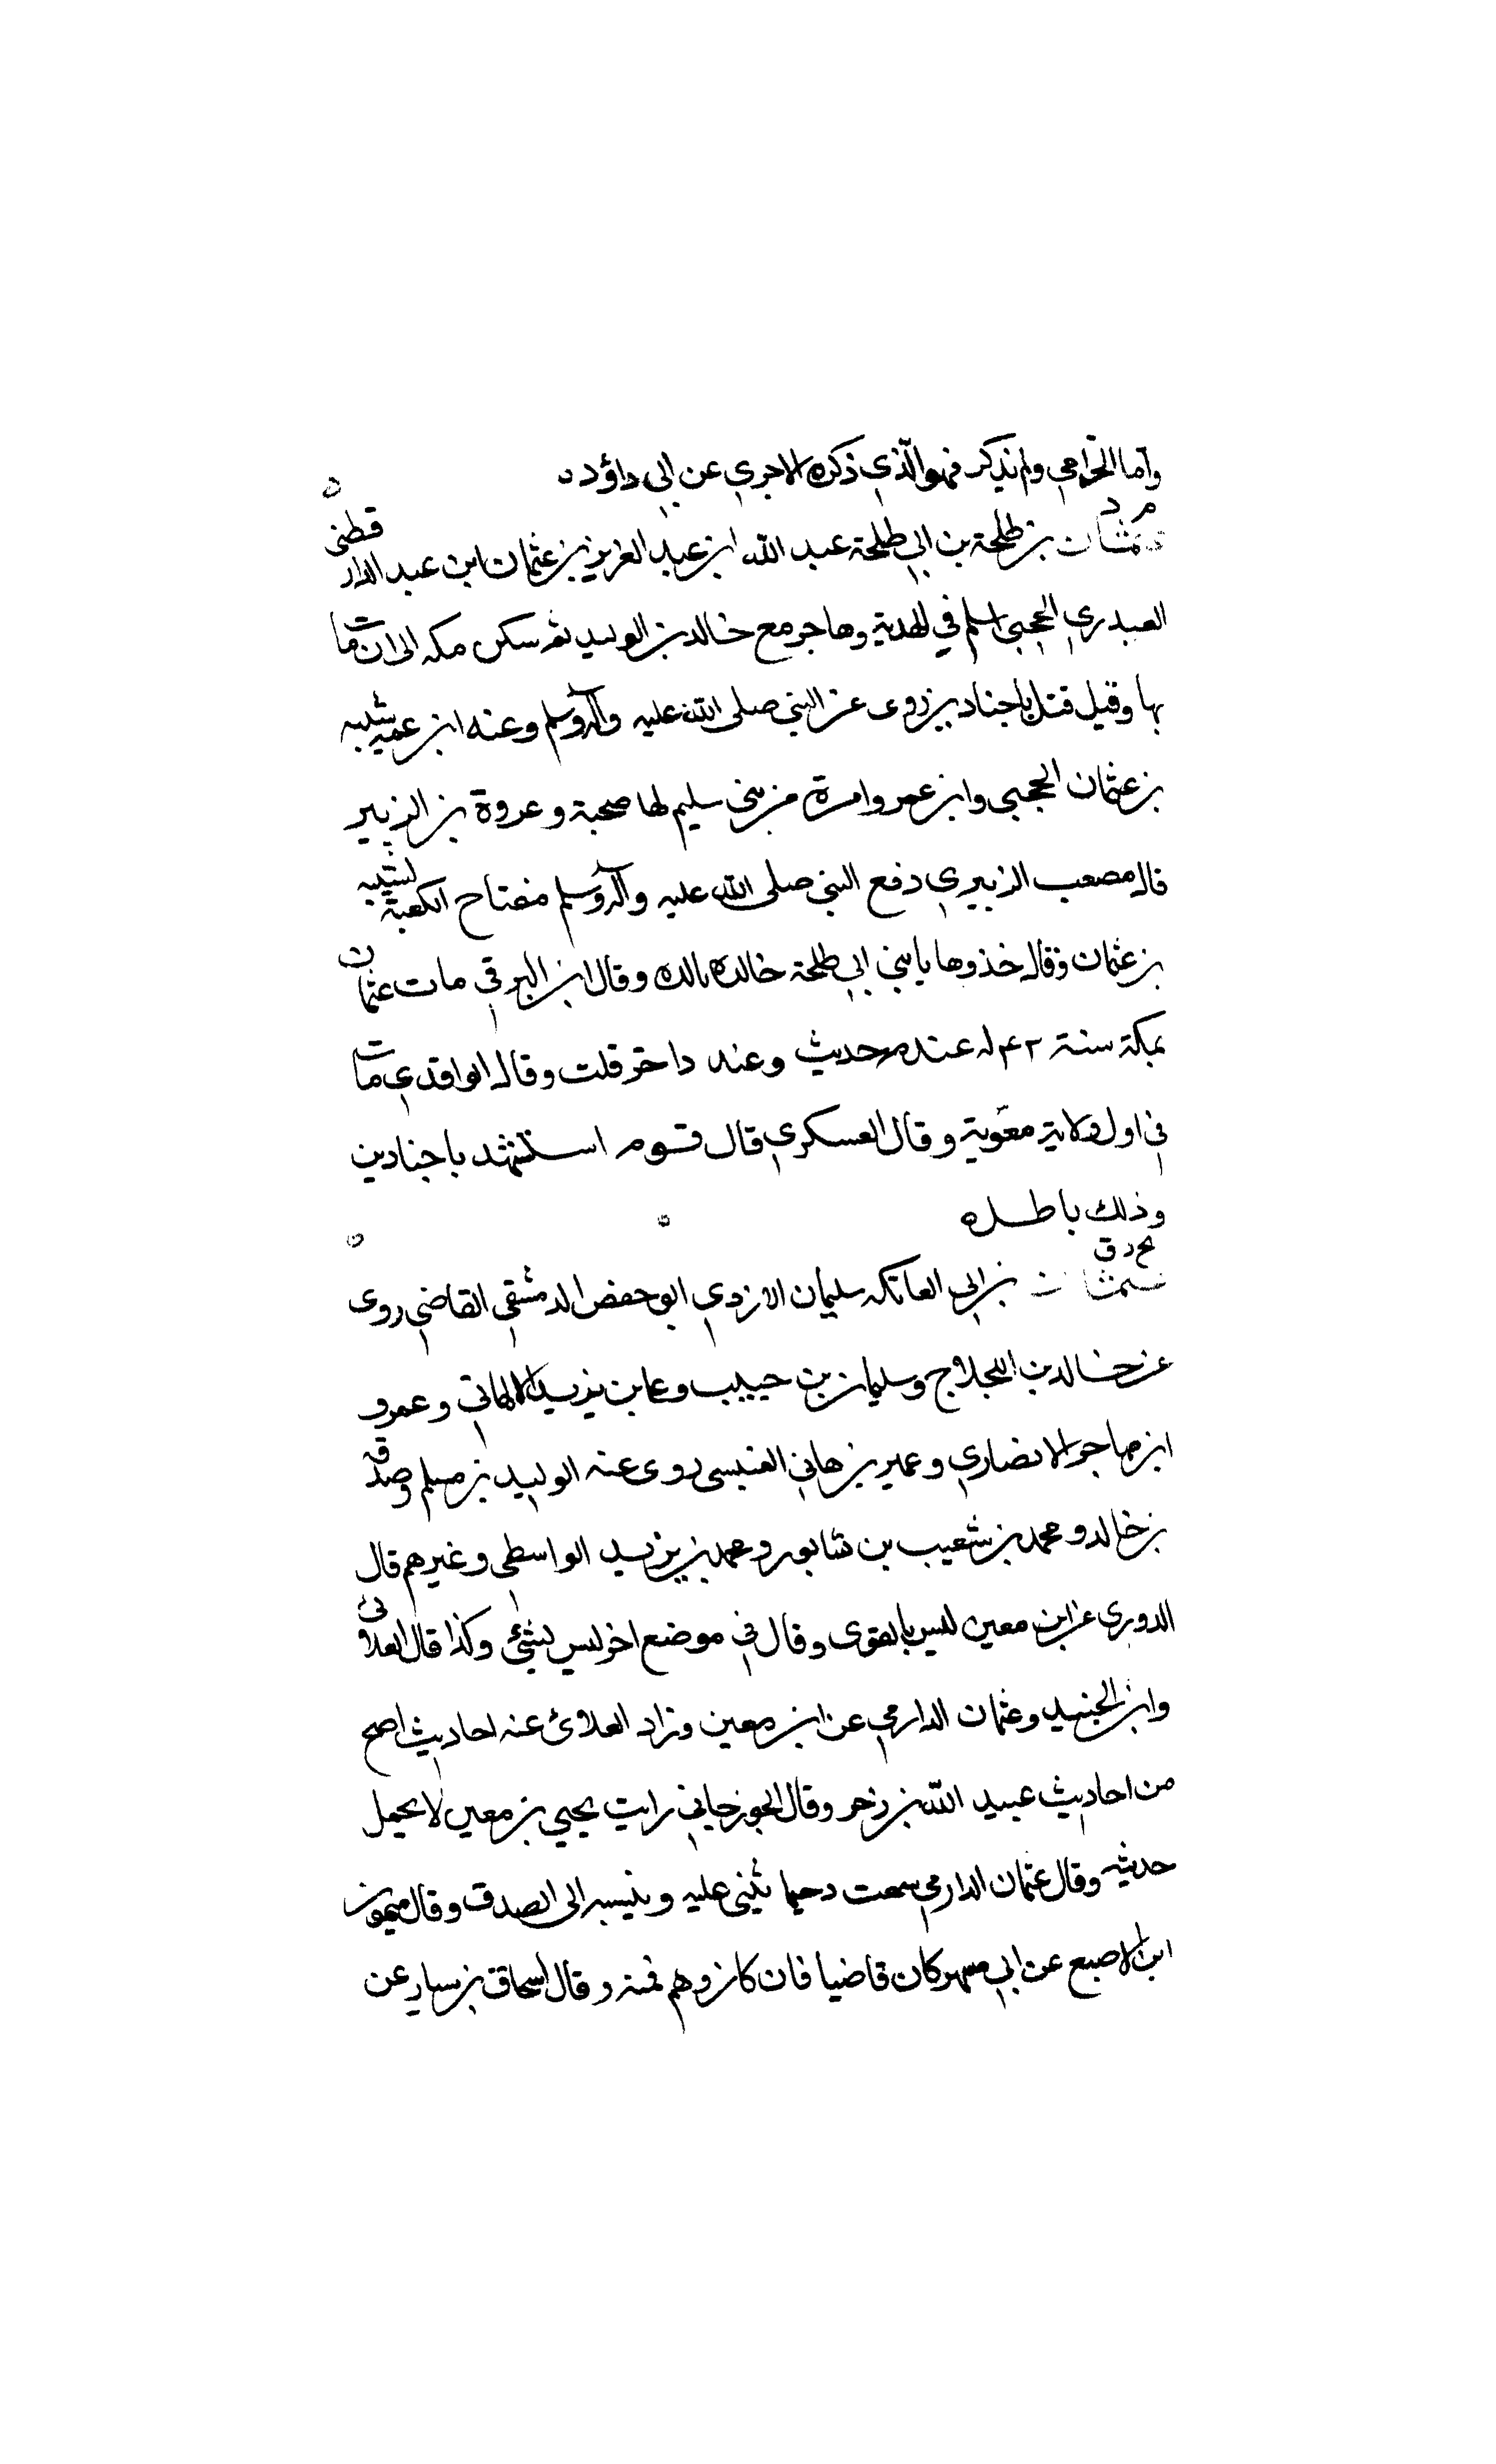 واما الحزامي ولم يذكر فهو الّذي ذكره الاجري عن ابي داؤد ه
م د
عثمان بن طلحة بن ابي طلحة عبد الله ابن عبد العزيز بن عثمان ابن عبد الدار قطني
العبدري الحجبي اسلم في الهدنة وهاجر مع خالد بن الوليد ثم سكن مكه الى ان مات
بها وقيل قتل باجنادين روى عن النبي صلى الله عليه وآله وسلم وعنه ابن عمه شيبه
بن عثمان الحجبي وابن عمر وامرة من بني سليم لها صحبة وعروة بن الزبير
قال مصعب الزبيري دفع النبي صلى الله عليه وآله وسلم مفتاح الكعبة لشيبه
بن عثمان وقال خذوها يا بني ابي طلحة خالدة تالده وقال ابن البرقي مات عثمان
بمكة سنة ٤٢ له عندم حديث وعند د اخر قلت وقال الواقدي مات
في اول ولاية معوية وقال العسكري قال قوم استشهد باجنادين
وذلك باطل ه
بخ د ق
عثمان بن ابي العاتكه سليمان الازدي ابو حفص الدمشقي القاضي روى
عن خالد بن اللجلاج وسليمان بن حبيب وعلي بن يزيد الالهاني وعمرو
ابن مهاجر الانصاري وعمير بن هاني العنسي روى عنه الوليد بن مسلم وصدقه
بن خالد ومحمد بن شعيب بن شابور ومحمد بن يزيد الواسطي وغيرهم قال
الدوري عن ابن معين ليس بالقوى وقال في موضع اخر ليس بشئ وكذا قال الغلابي
وابن الجنيد وعثمان الدارمي عن ابن معين وزاد الغلابي عنه احاديث اصح
من احاديث عبيد الله بن زحر وقال الجوزجاني رايت يحيى بن معين لا يحمل
حديثه وقال عثمان الدارمي سمعت دحيما يثني عليه وينسبه الى الصدق وقال ميمون
ابن الاصبع عن ابي مسهر كان قاضيا فان كان وهم فمنه وقال اسحاق بن سيار عن